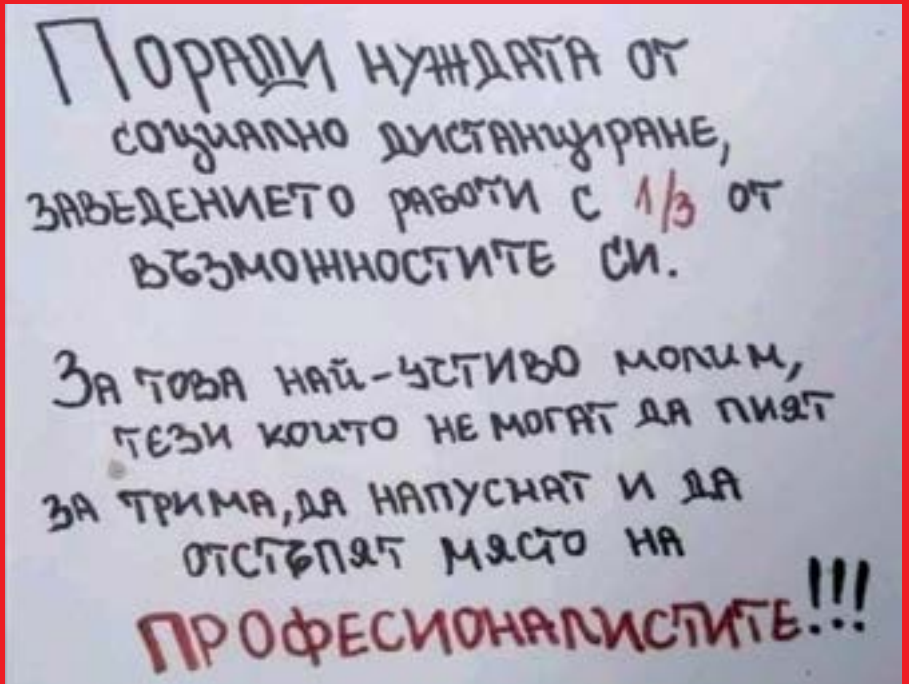 Поради нуждата от
социално дистанциране,
заведението работи с 1/3 от
възможностите си.
За това най-учтиво молим,
тези които не могат да пият
за трима, да напуснат и да
отстъпят място на
професионалистите!!!